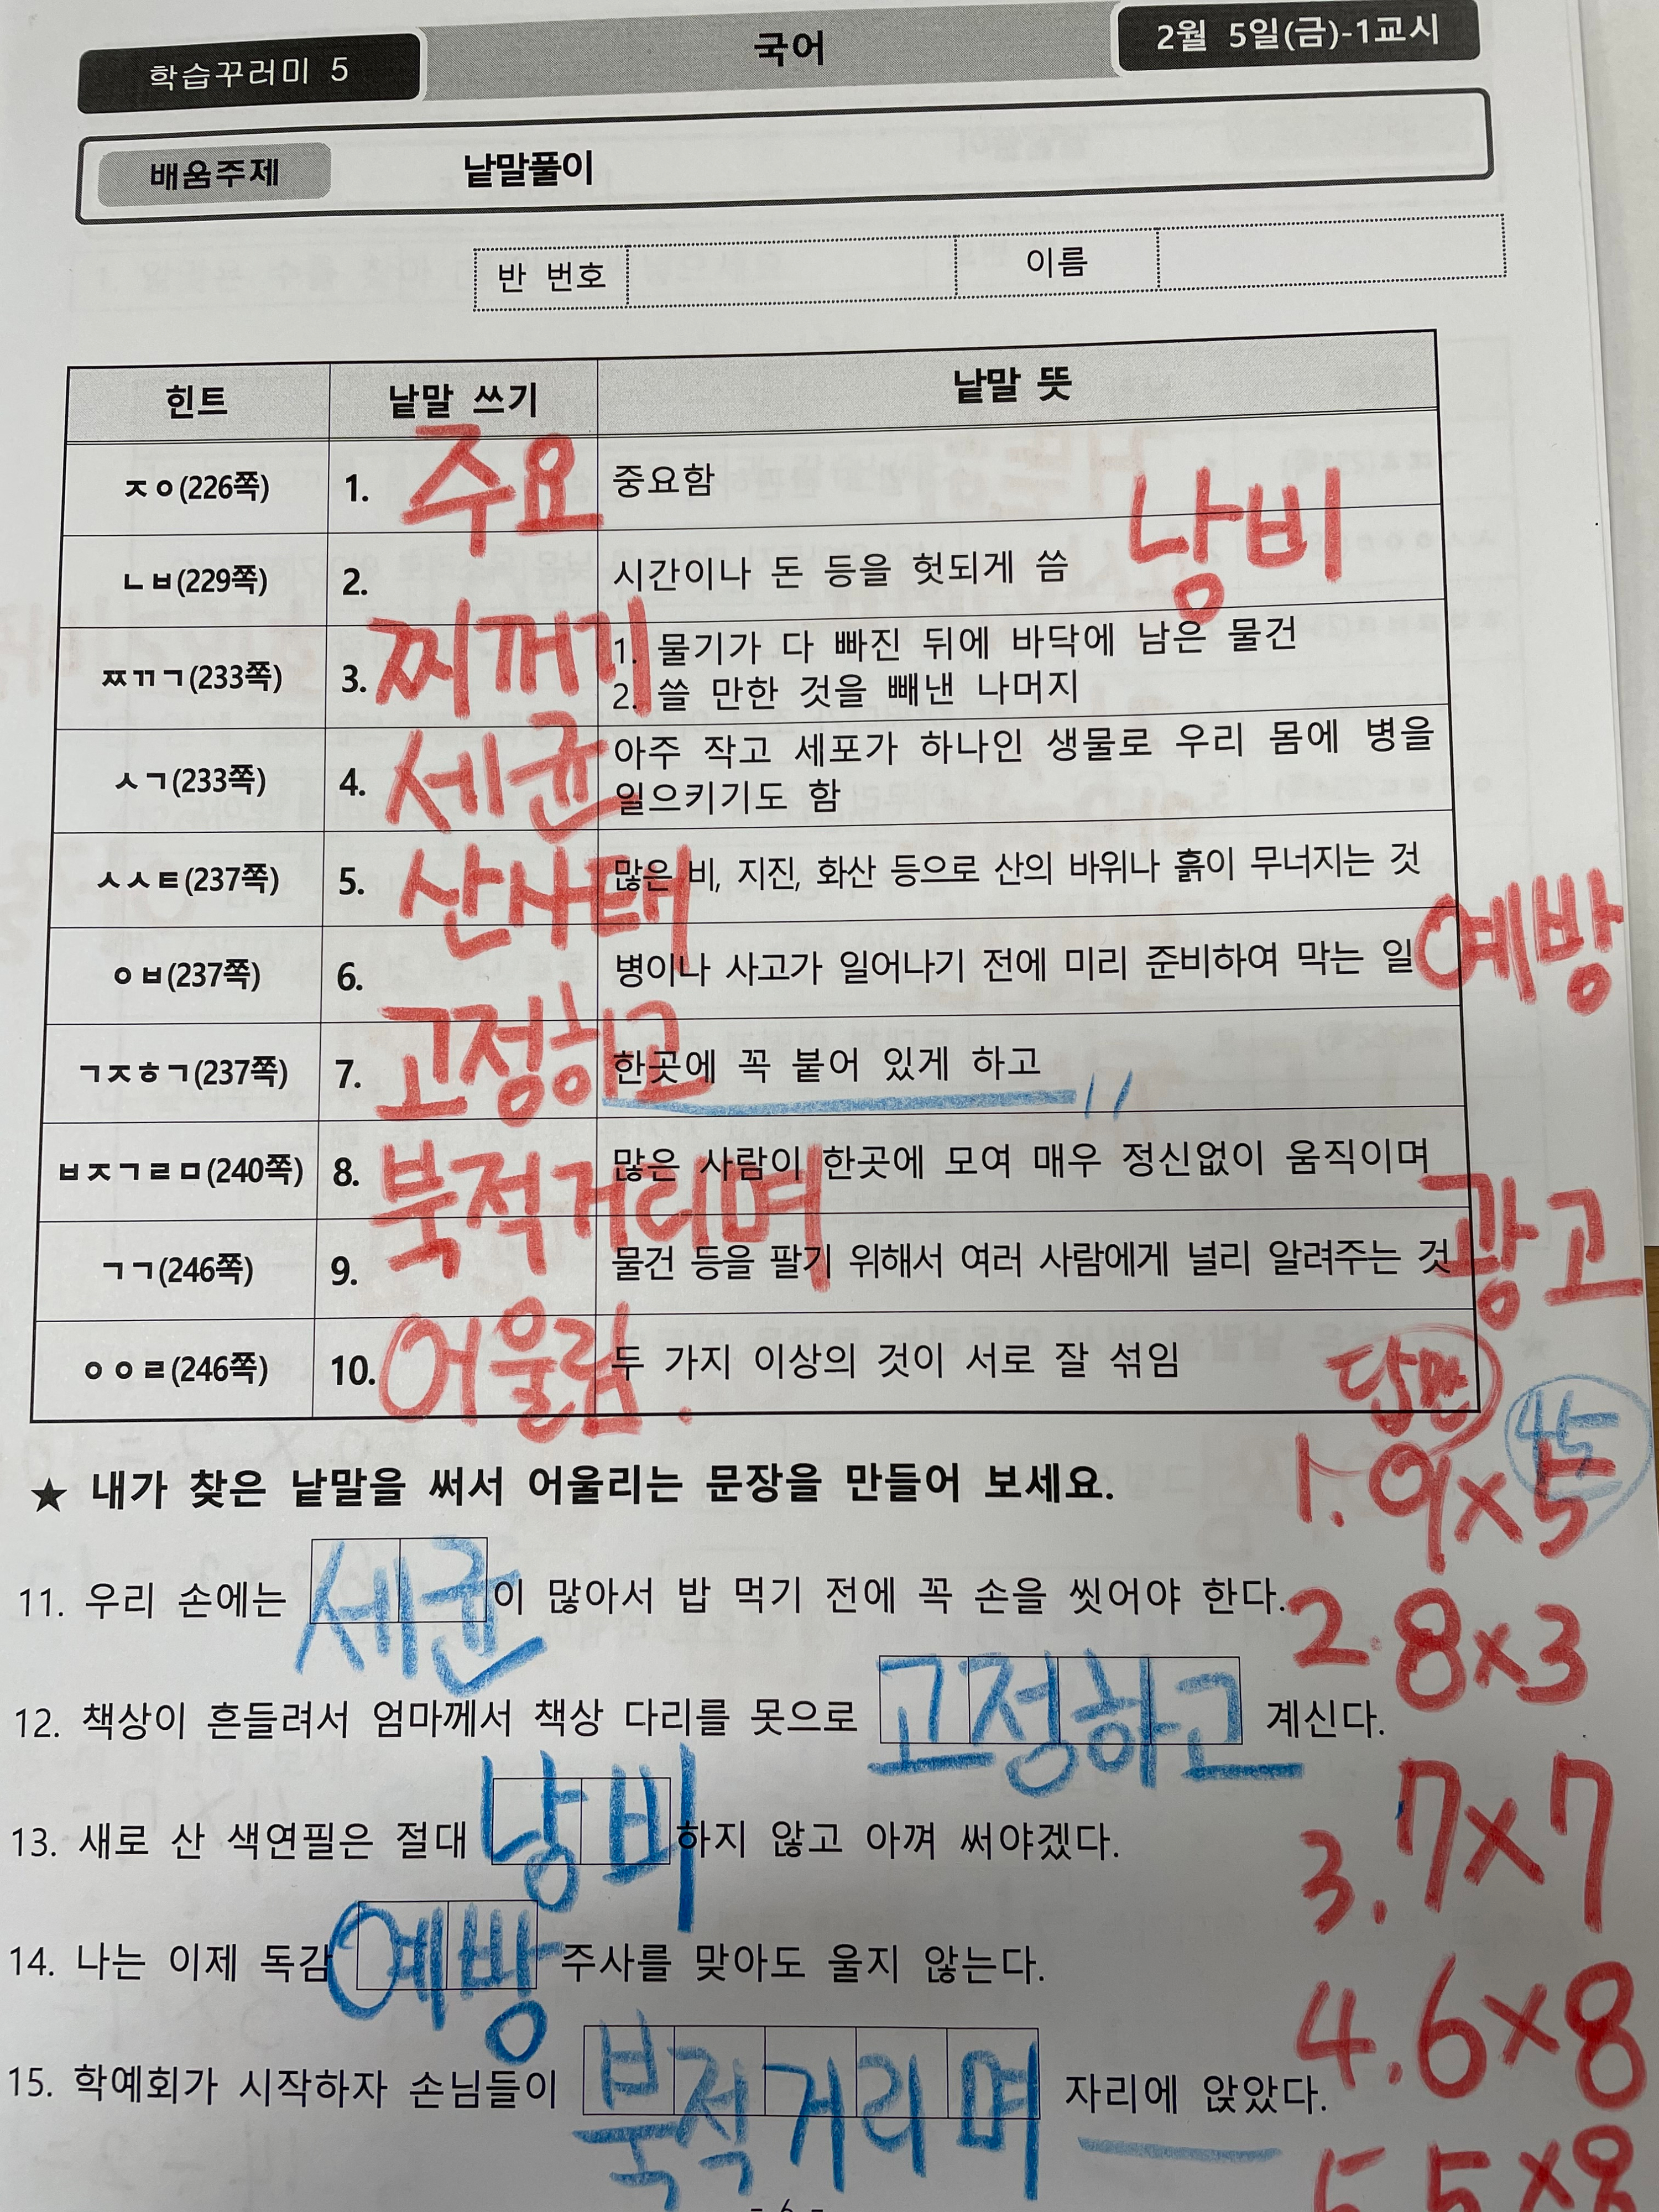 학습꾸러미 5 국어 2월 5일(금)-1교시
배움주제 낱말풀이
반 번호 이름
힌트 낱말 쓰기 낱말 뜻
ㅈㅇ(226쪽) 1. 주요 중요함
ㄴㅂ(229쪽) 2. 시간이나 돈 등을 헛되게 씀 낭비
ㅉㄲㄱ(233쪽) 3. 찌꺼기 1. 물기가 다 빠진 뒤에 바닥에 남은 물건
2. 쓸 만한 것을 빼낸 나머지
ㅅㄱ(233쪽) 4. 세균 아주 작고 세포가 하나인 생물로 우리 몸에 병을
일으키기도 함
ㅅㅅㅌ(237쪽) 5. 산사태 많은 비, 지진, 화산 등으로 산의 바위나 흙이 무너지는 것
ㅇㅂ(237쪽) 6. 병이나 사고가 일어나기 전에 미리 준비하여 막는 일 예방
ㄱㅈㅎㄱ(237쪽) 7. 고정하고 한곳에 꼭 붙어 있게 하고
ㅂㅈㄱㄹㅁ(240쪽) 8. 북적거리며 많은 사람이 한곳에 모여 매우 정신없이 움직이며
ㄱㄱ(246쪽) 9. 물건 등을 팔기 위해서 여러 사람에게 널리 알려주는 것 광고
ㅇㅇㄹ(246쪽) 10. 어울림. 두 가지 이상의 것이 서로 잘 섞임
답만
45
★ 내가 찾은 낱말을 써서 어울리는 문장을 만들어 보세요.
1. 9×5
11. 우리 손에는 세균이 많아서 밥 먹기 전에 꼭 손을 씻어야 한다.
2. 8×3
12. 책상이 흔들려서 엄마께서 책상 다리를 못으로 고정하고 계신다.
13. 새로 산 색연필은 절대 낭비하지 않고 아껴 써야겠다.
3. 7×7
14. 나는 이제 독감 예방 주사를 맞아도 울지 않는다.
4. 6×8
15. 학예회가 시작하자 손님들이 북적거리며 자리에 앉았다.
5. 5×8
- 6 -